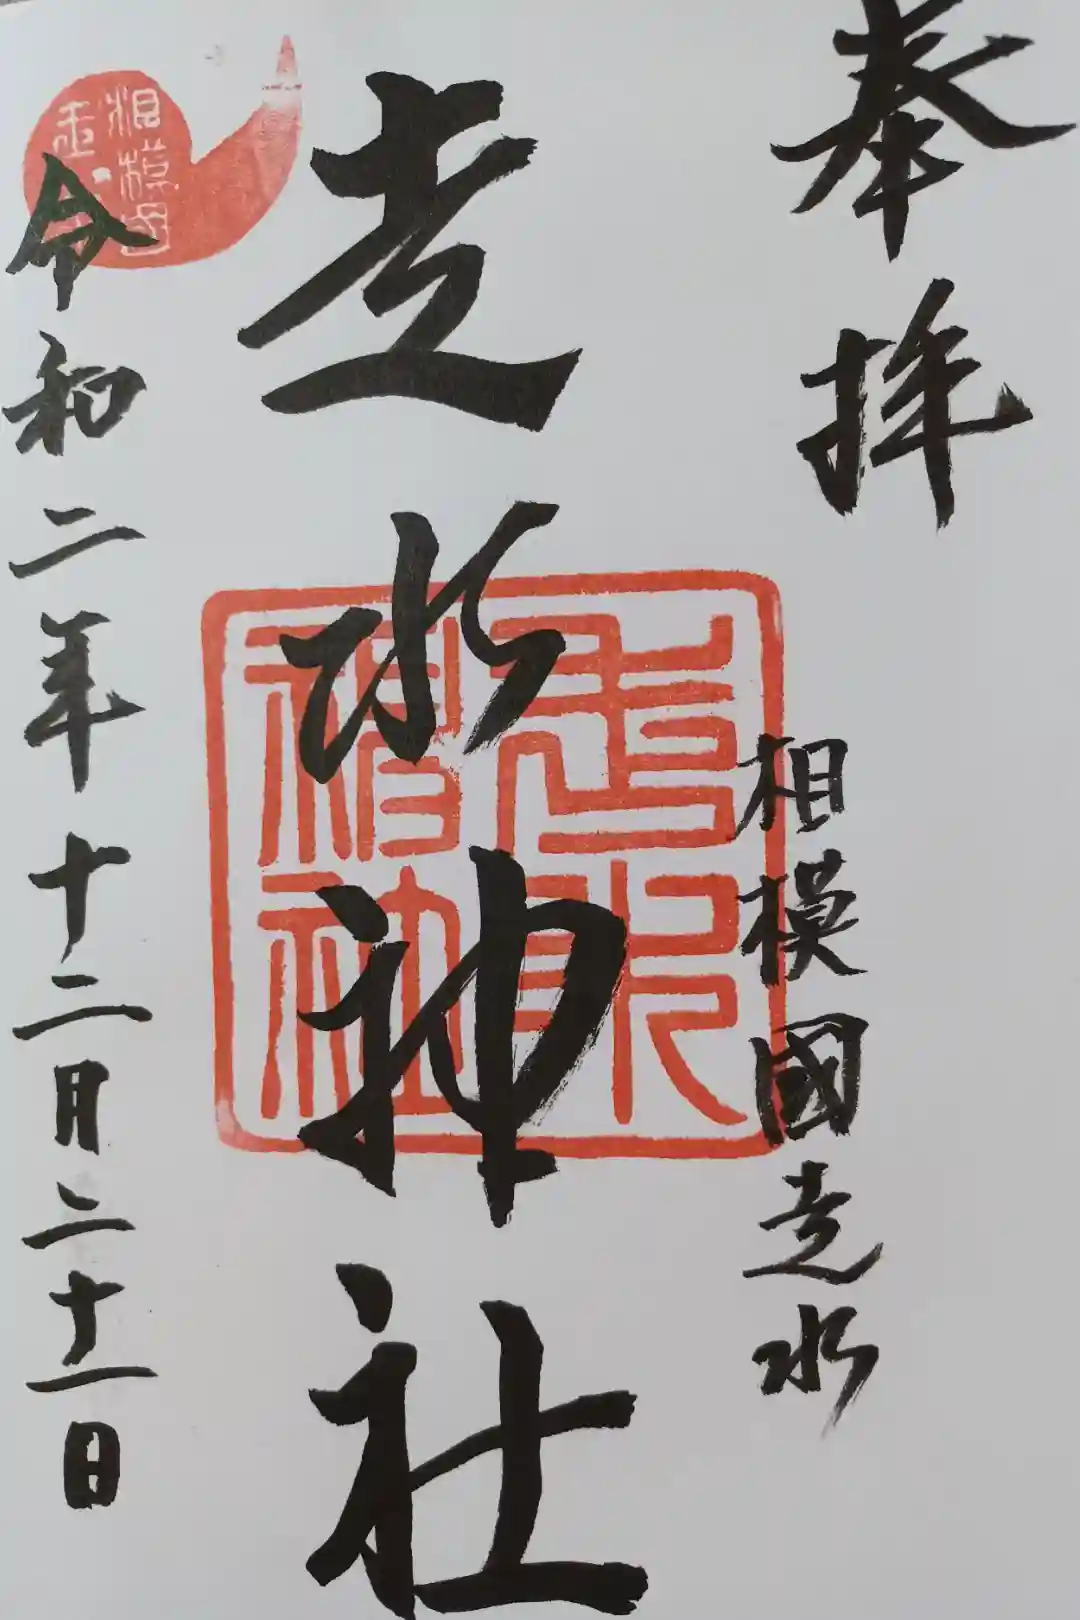 奉拝
相模國走水
走水神社
走水神社
令和二年十二月二十一日
相模国